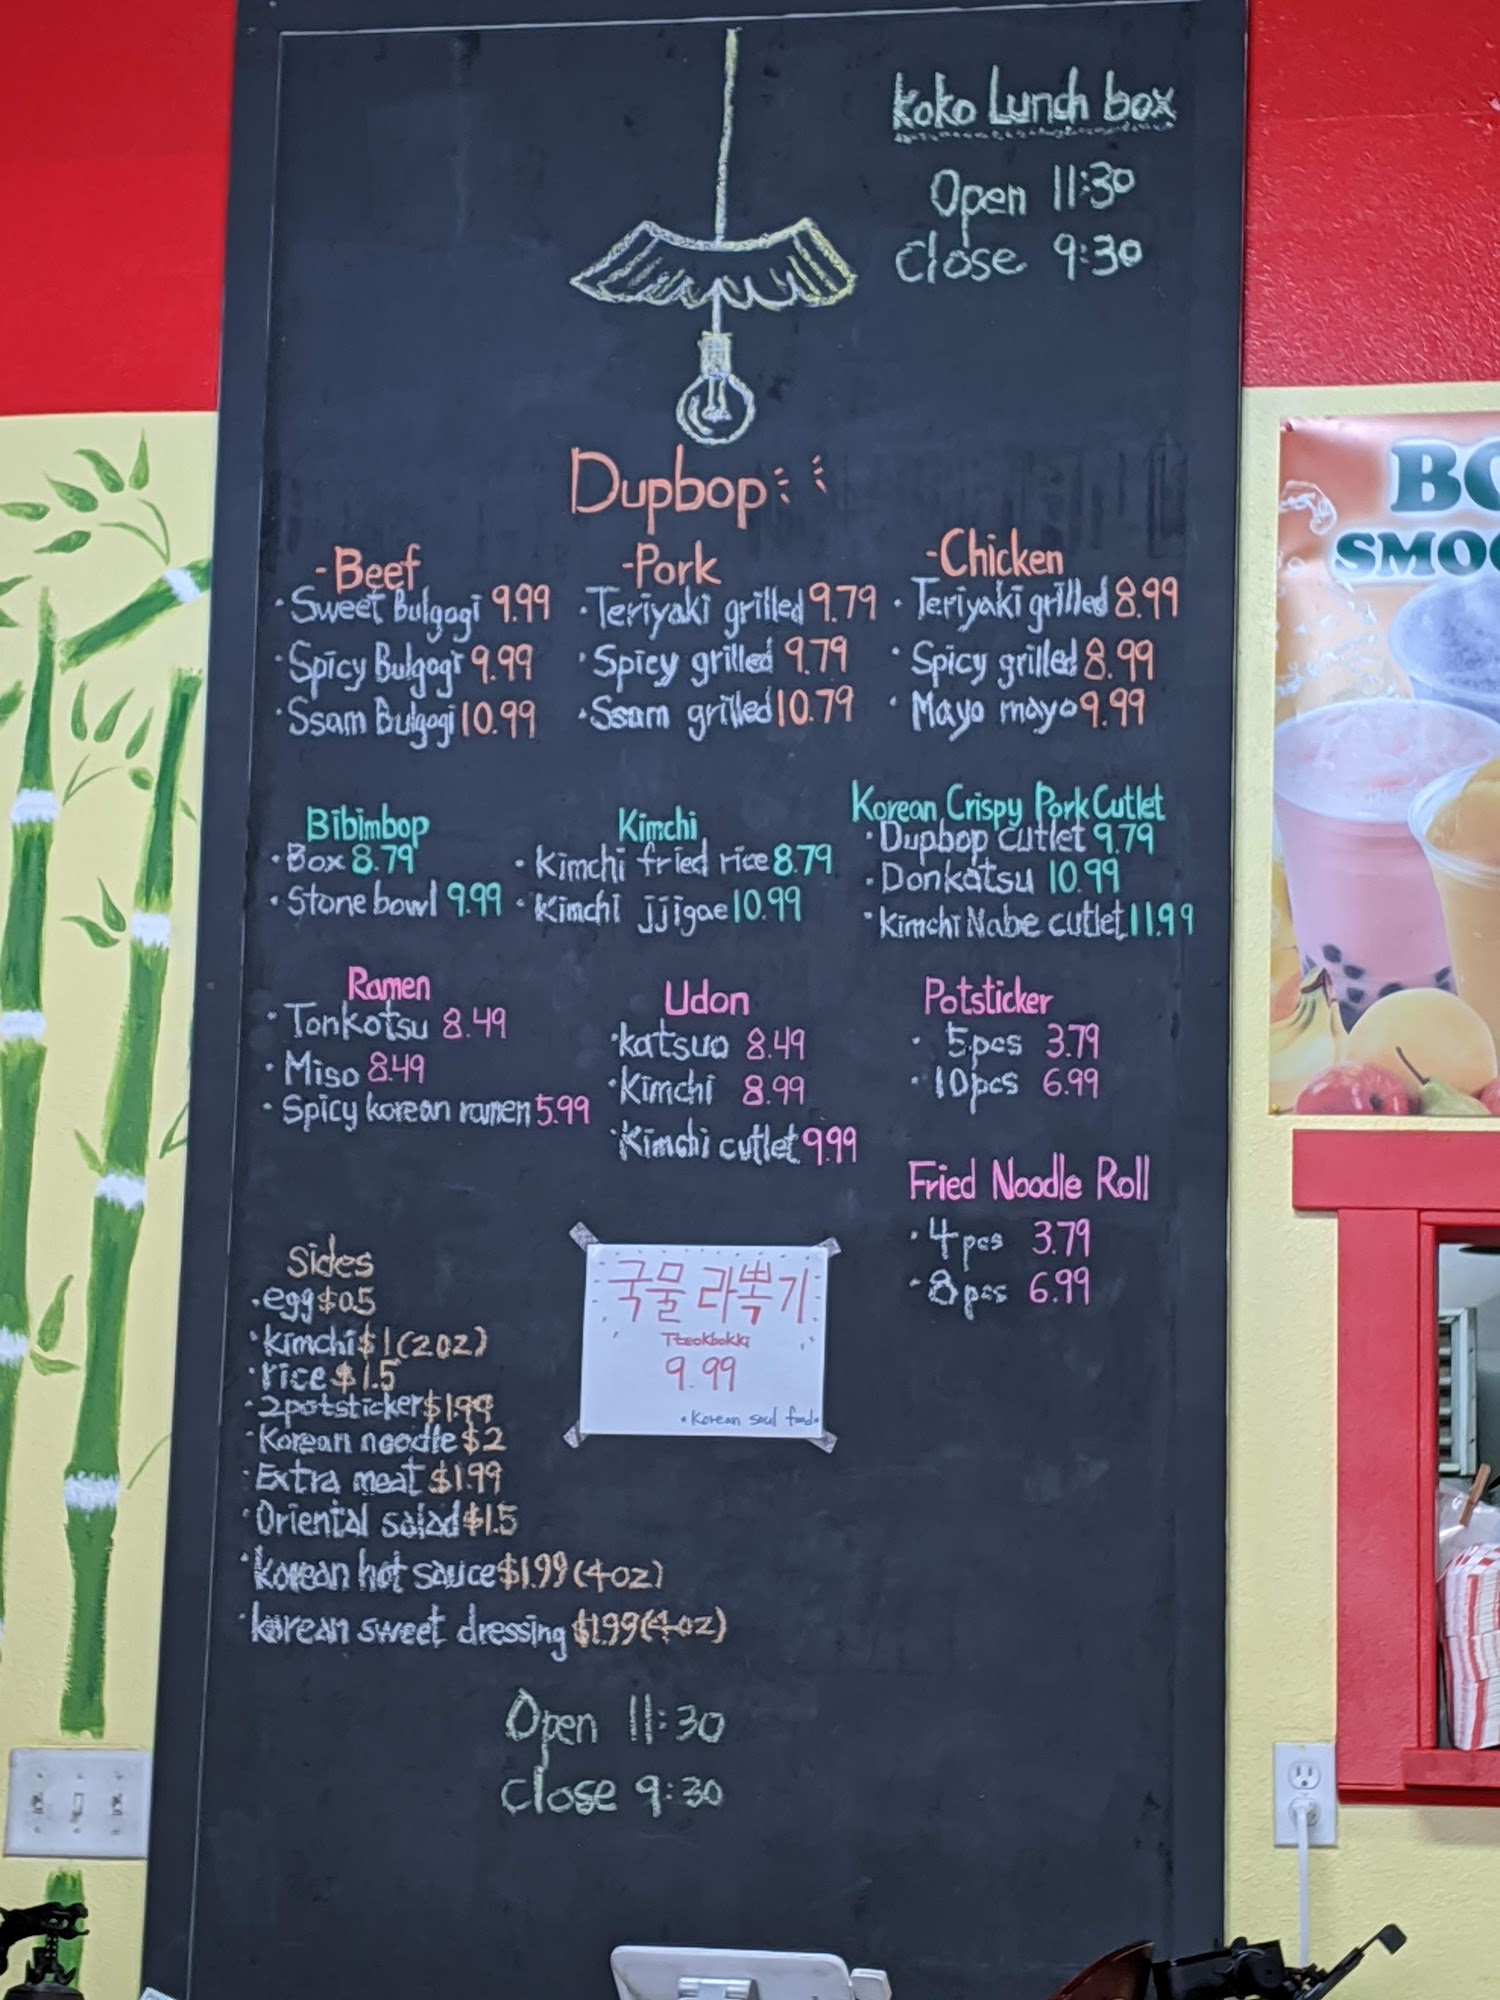 Koko Lunch box
Open 11:30
Close 9:30
Dupbop
-Beef
· Sweet Bulgogi 9.99
· Spicy Bulgogi 9.99
· Ssam Bulgogi 10.99
-Pork
· Teriyaki grilled 9.79
· Spicy grilled 9.79
· Ssam grilled 10.79
-Chicken
· Teriyaki grilled 8.99
· Spicy grilled 8.99
· Mayo mayo 9.99
Bibimbop
· Box 8.79
· Stone bowl 9.99
Kimchi
· Kimchi fried rice 8.79
· Kimchi jjigae 10.99
Korean Crispy Pork Cutlet
· Dupbop cutlet 9.79
· Donkatsu 10.99
· Kimchi Nabe cutlet 11.99
Ramen
· Tonkotsu 8.49
· Miso 8.49
· Spicy korean ramen 5.99
Udon
· katsuo 8.49
· Kimchi 8.99
· Kimchi cutlet 9.99
Potsticker
· 5pcs 3.79
· 10pcs 6.99
Fried Noodle Roll
· 4pcs 3.79
· 8pcs 6.99
Sides
· egg $0.5
· kimchi $1 (2oz)
· rice $1.5
· 2potsticker $1.99
· Korean noodle $2
· Extra meat $1.99
· Oriental salad $1.5
· korean hot sauce $1.99 (4oz)
· korean sweet dressing $1.99 (4oz)
국물 라볶기
Tteokbokki
9.99
* Korean soul food *
Open 11:30
Close 9:30